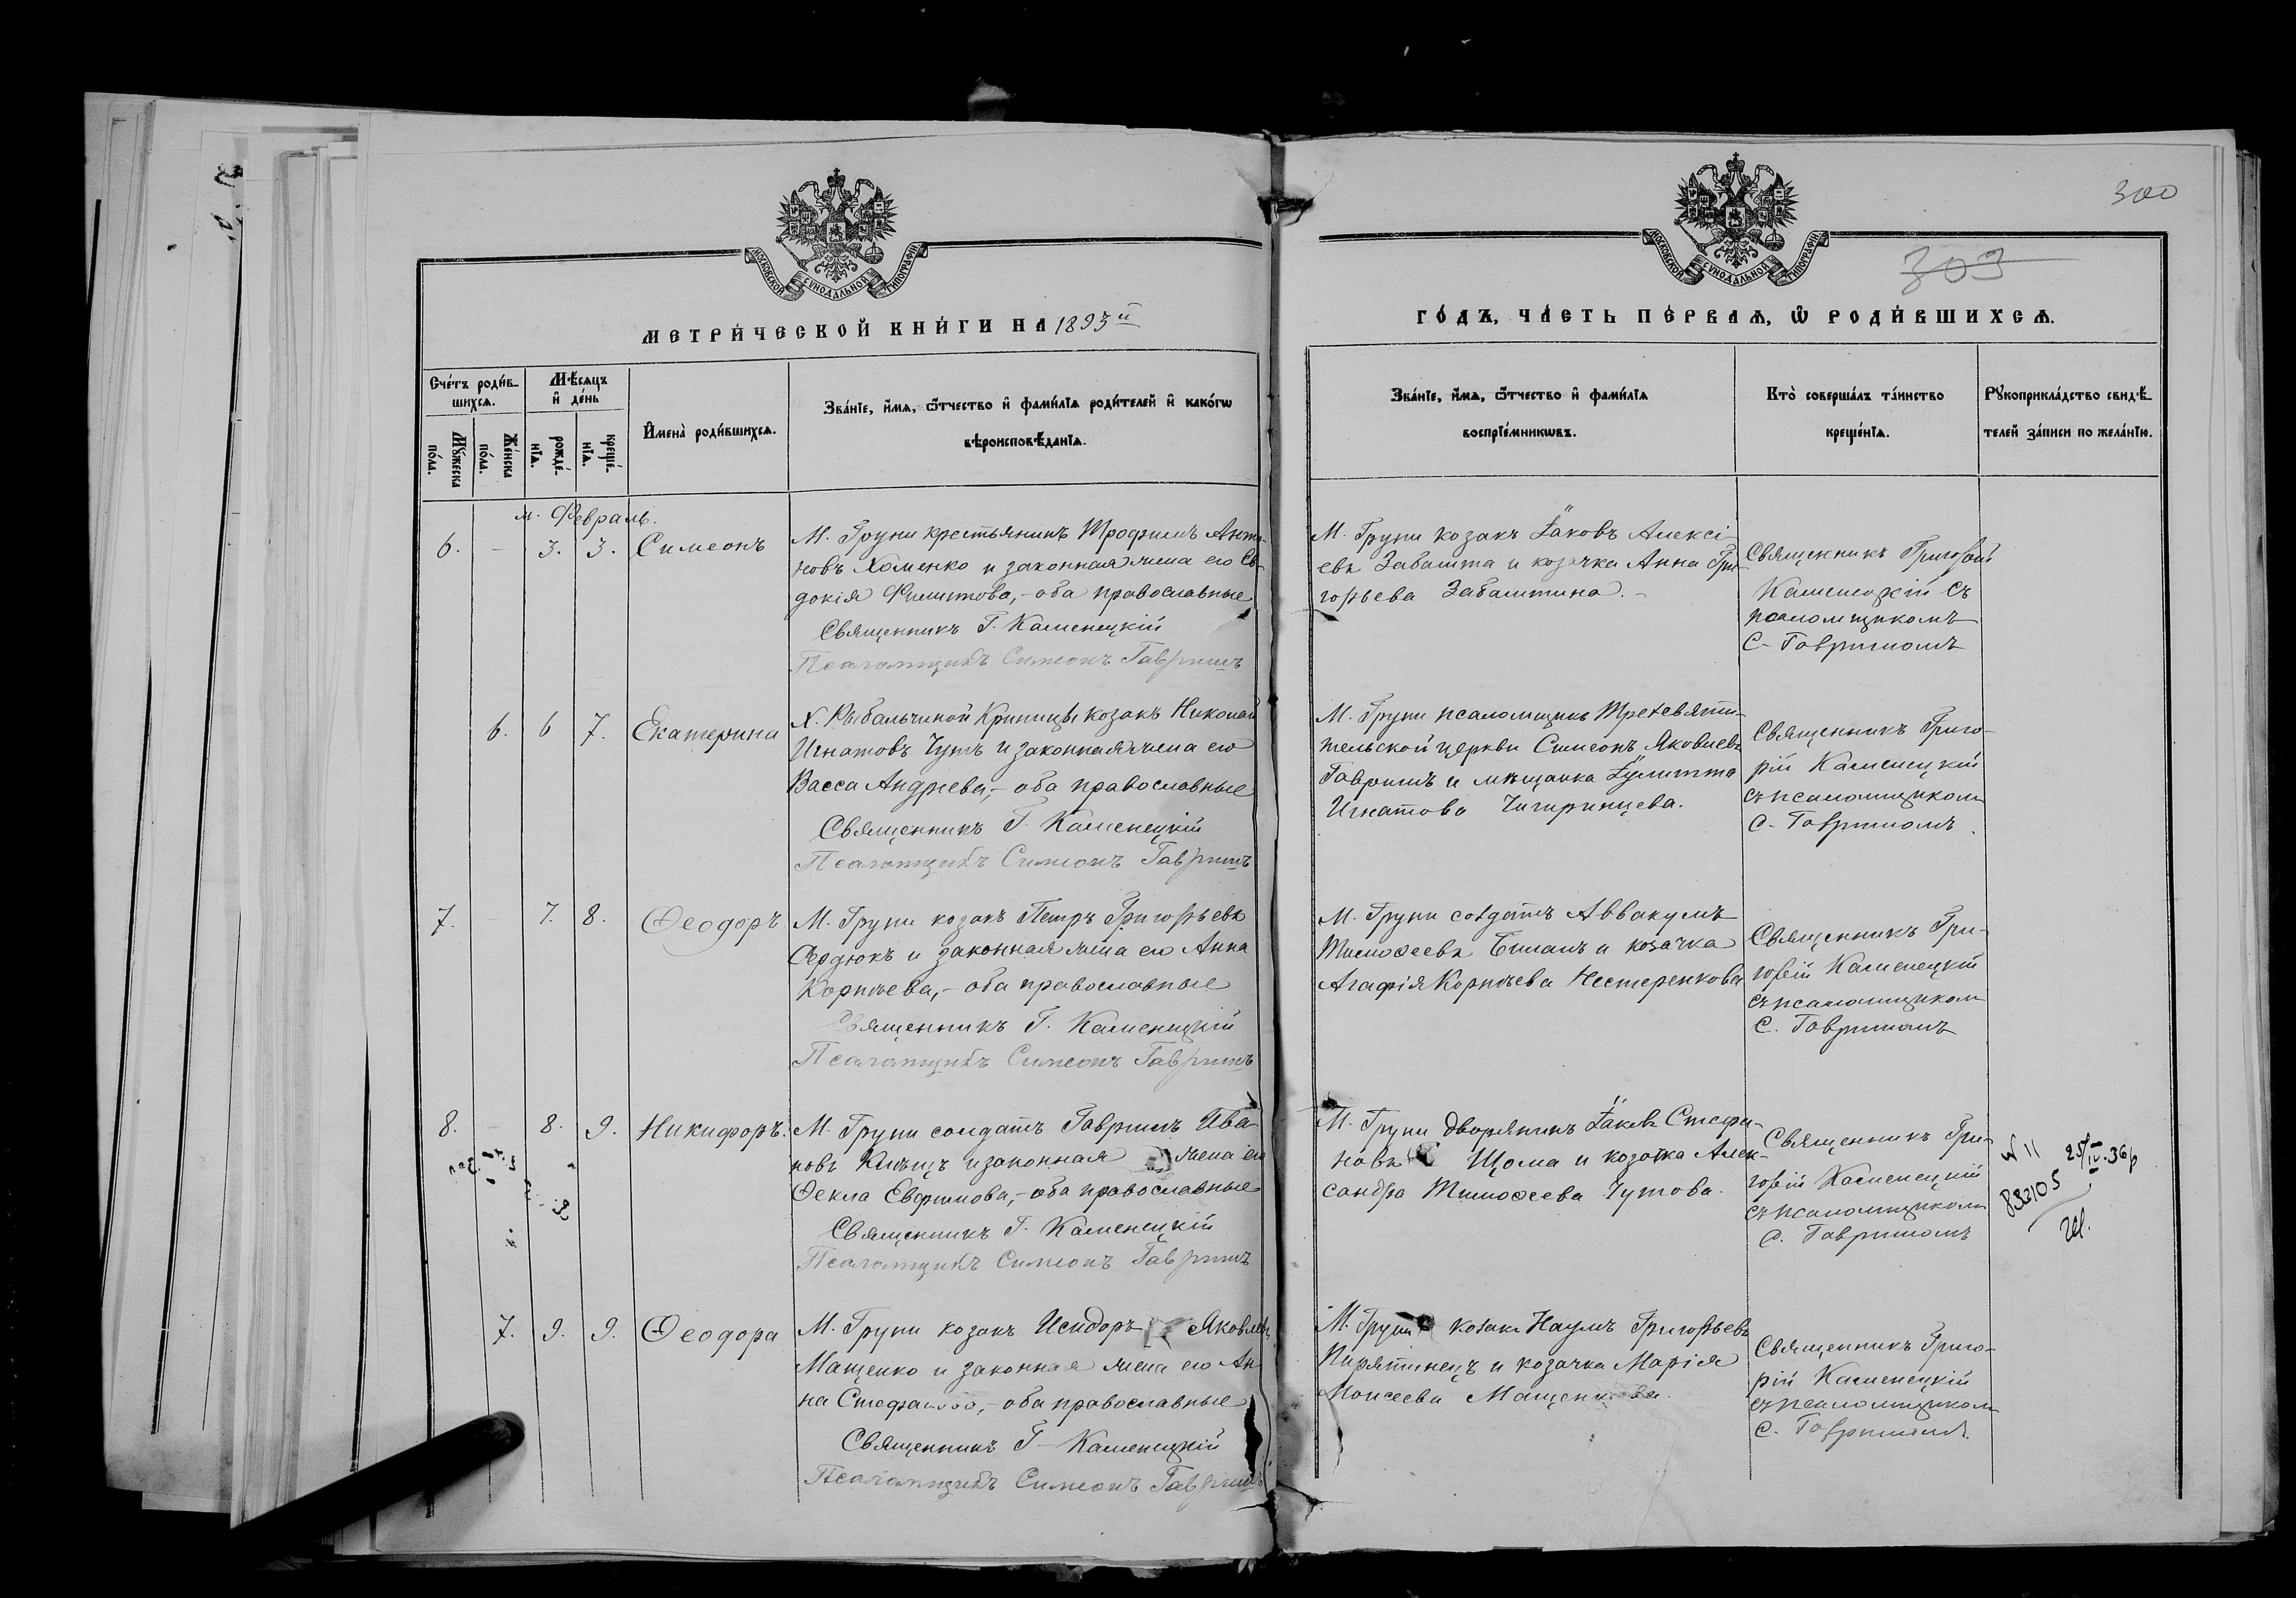 300
303
МОСКОВСКОЙ СУНОДАЛЬНОЙ ТИПОГРАФІИ
МОСКОВСКОЙ СУНОДАЛЬНОЙ ТИПОГРАФІИ
МЕТРИ́ЧЕСКОЙ КНИ́ГИ НА 1893й
ГО́ДЪ, ЧА́СТЬ ПЕ́РВАѦ, Ѽ РОДИ́ВШИХСѦ.
Счéтъ роди́в-
шихсѧ.
Мꙋ́жеска
по́ла.
Же́нска
по́ла.
Мѣ́сѧцъ
и҆ де́нь
рожде́-
нїѧ.
креще́-
нїѧ.
И҆мена̀ роди́вшихсѧ.
Зва́нїе, и҆́мѧ, ѻ҆́тчество и҆ фами́лїѧ роди́телей и҆ како́гѡ
вѣроисповѣ́данїѧ.
Зва́нїе, и҆́мѧ, ѻ҆́тчество и҆ фами́лїѧ
воспрїе́мникѡвъ.
Кто̀ соверша́лъ та́инство
креще́нїѧ.
Рꙋкоприкла́дство свидѣ́-
телей за́писи по жела́нїю.
м. Февраль.
6. - 3. 3. Симеонъ
М. Груни крестьянинъ Трофимъ Анто-
новъ Хоменко и законная жена его Ев-
докія Филипова, - оба православные
Священникъ Г. Каменецкій
Псаломщикъ Симеонъ Гавришъ
М. Груни козакъ Іаковъ Алексі-
евъ Забашта и козачка Анна Гри-
горьева Забаштина. -
Священникъ Григорій
Каменецкій съ
псаломщикомъ
С. Гавришомъ
6. 6 7. Екатерина
Х. Рыбальчиной Криницы козакъ Николай
Игнатовъ Чутъ и законная жена его
Васса Андреева, - оба православные
Священникъ Г. Каменецкій
Псаломщикъ Симеонъ Гавришъ
М. Груни псаломщикъ Трехсвяти-
тельской церкви Симеонъ Яковлевъ
Гавришъ и мѣщанка Іулитта
Игнатова Чигиринцева.
Священникъ Григо-
рій Каменецкій
съ псаломщиком
С. Гавришомъ
7. 7. 8. Ѳеодоръ
М. Груни козакъ Петръ Григорьевъ
Сердюкъ и законная жена его Анна
Корнѣева, - оба православные
Священникъ Г. Каменецкій
Псаломщикъ Симеонъ Гавришъ
М. Груни солдатъ Аввакумъ
Тимоѳеевъ Билашъ и козачка
Агафія Корнѣева Нестеренкова
Священникъ Гри-
горій Каменецкій
съ псаломщиком
С. Гавришомъ
8. - 8. 9. Никифоръ.
М. Груни солдатъ Гавриилъ Ива-
новъ и законная жена его
Ѳекла Евфимова, - оба православные
Священникъ Г. Каменецкій
Псаломщикъ Симеонъ Гавришъ
М. Груни дворянинъ Іаковъ Стефа-
новъ Щома и козачка Алек-
сандра Тимоѳеева Чутова.
Священникъ Гри-
горій Каменецкій
съ псаломщиком
С. Гавришомъ
25/IV.36р
7. 9. 9. Ѳеодора
М. Груни козакъ Исидоръ Яковлевъ
Мащенко и законная жена его Ан-
на Стефанова, - оба православные
Священникъ Г. Каменецкій
Псаломщикъ Симеонъ Гавришъ
М. Груни козакъ Наумъ Григорьевъ
Пирятинецъ и козачка Марія
Моисеева Мащенкова.
Священникъ Григо-
рій Каменецкій
съ псаломщиком
С. Гавришомъ.